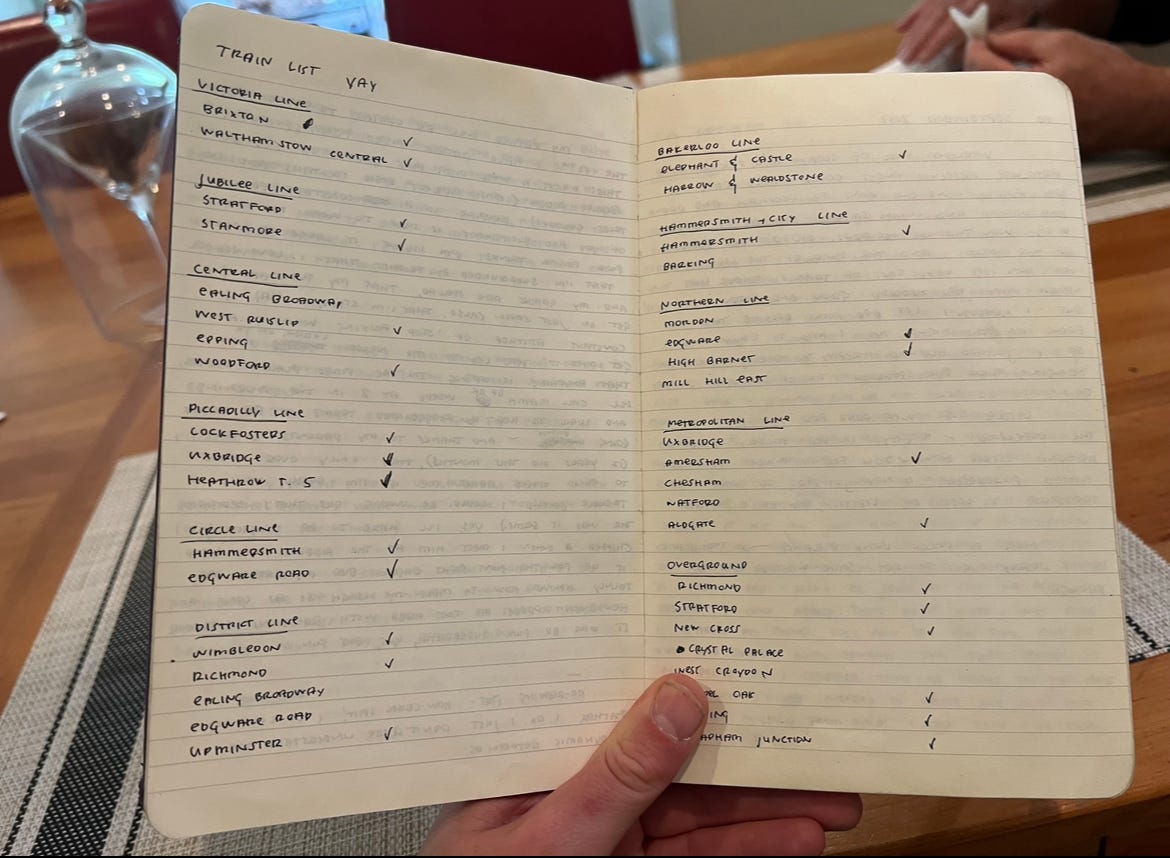 TRAIN LIST YAY
VICTORIA LINE
BRIXTON ✓
WALTHAMSTOW CENTRAL ✓
JUBILEE LINE
STRATFORD ✓
STANMORE ✓
CENTRAL LINE
EALING BROADWAY
WEST RUISLIP ✓
EPPING
WOODFORD ✓
PICCADILLY LINE
COCKFOSTERS ✓
UXBRIDGE ✓
HEATHROW T. 5 ✓
CIRCLE LINE
HAMMERSMITH ✓
EDGWARE ROAD ✓
DISTRICT LINE
WIMBLEDON ✓
RICHMOND ✓
EALING BROADWAY
EDGWARE ROAD
UPMINSTER ✓
BAKERLOO LINE
ELEPHANT & CASTLE ✓
HARROW & WEALDSTONE
HAMMERSMITH + CITY LINE
HAMMERSMITH ✓
BARKING
NORTHERN LINE
MORDON
EDGWARE ✓
HIGH BARNET ✓
MILL HILL EAST
METROPOLITAN LINE
UXBRIDGE
AMERSHAM ✓
CHESHAM
WATFORD
ALDGATE ✓
OVERGROUND
RICHMOND ✓
STRATFORD ✓
NEW CROSS ✓
CRYSTAL PALACE
WEST CROYDON
OAK ✓
✓
JUNCTION ✓